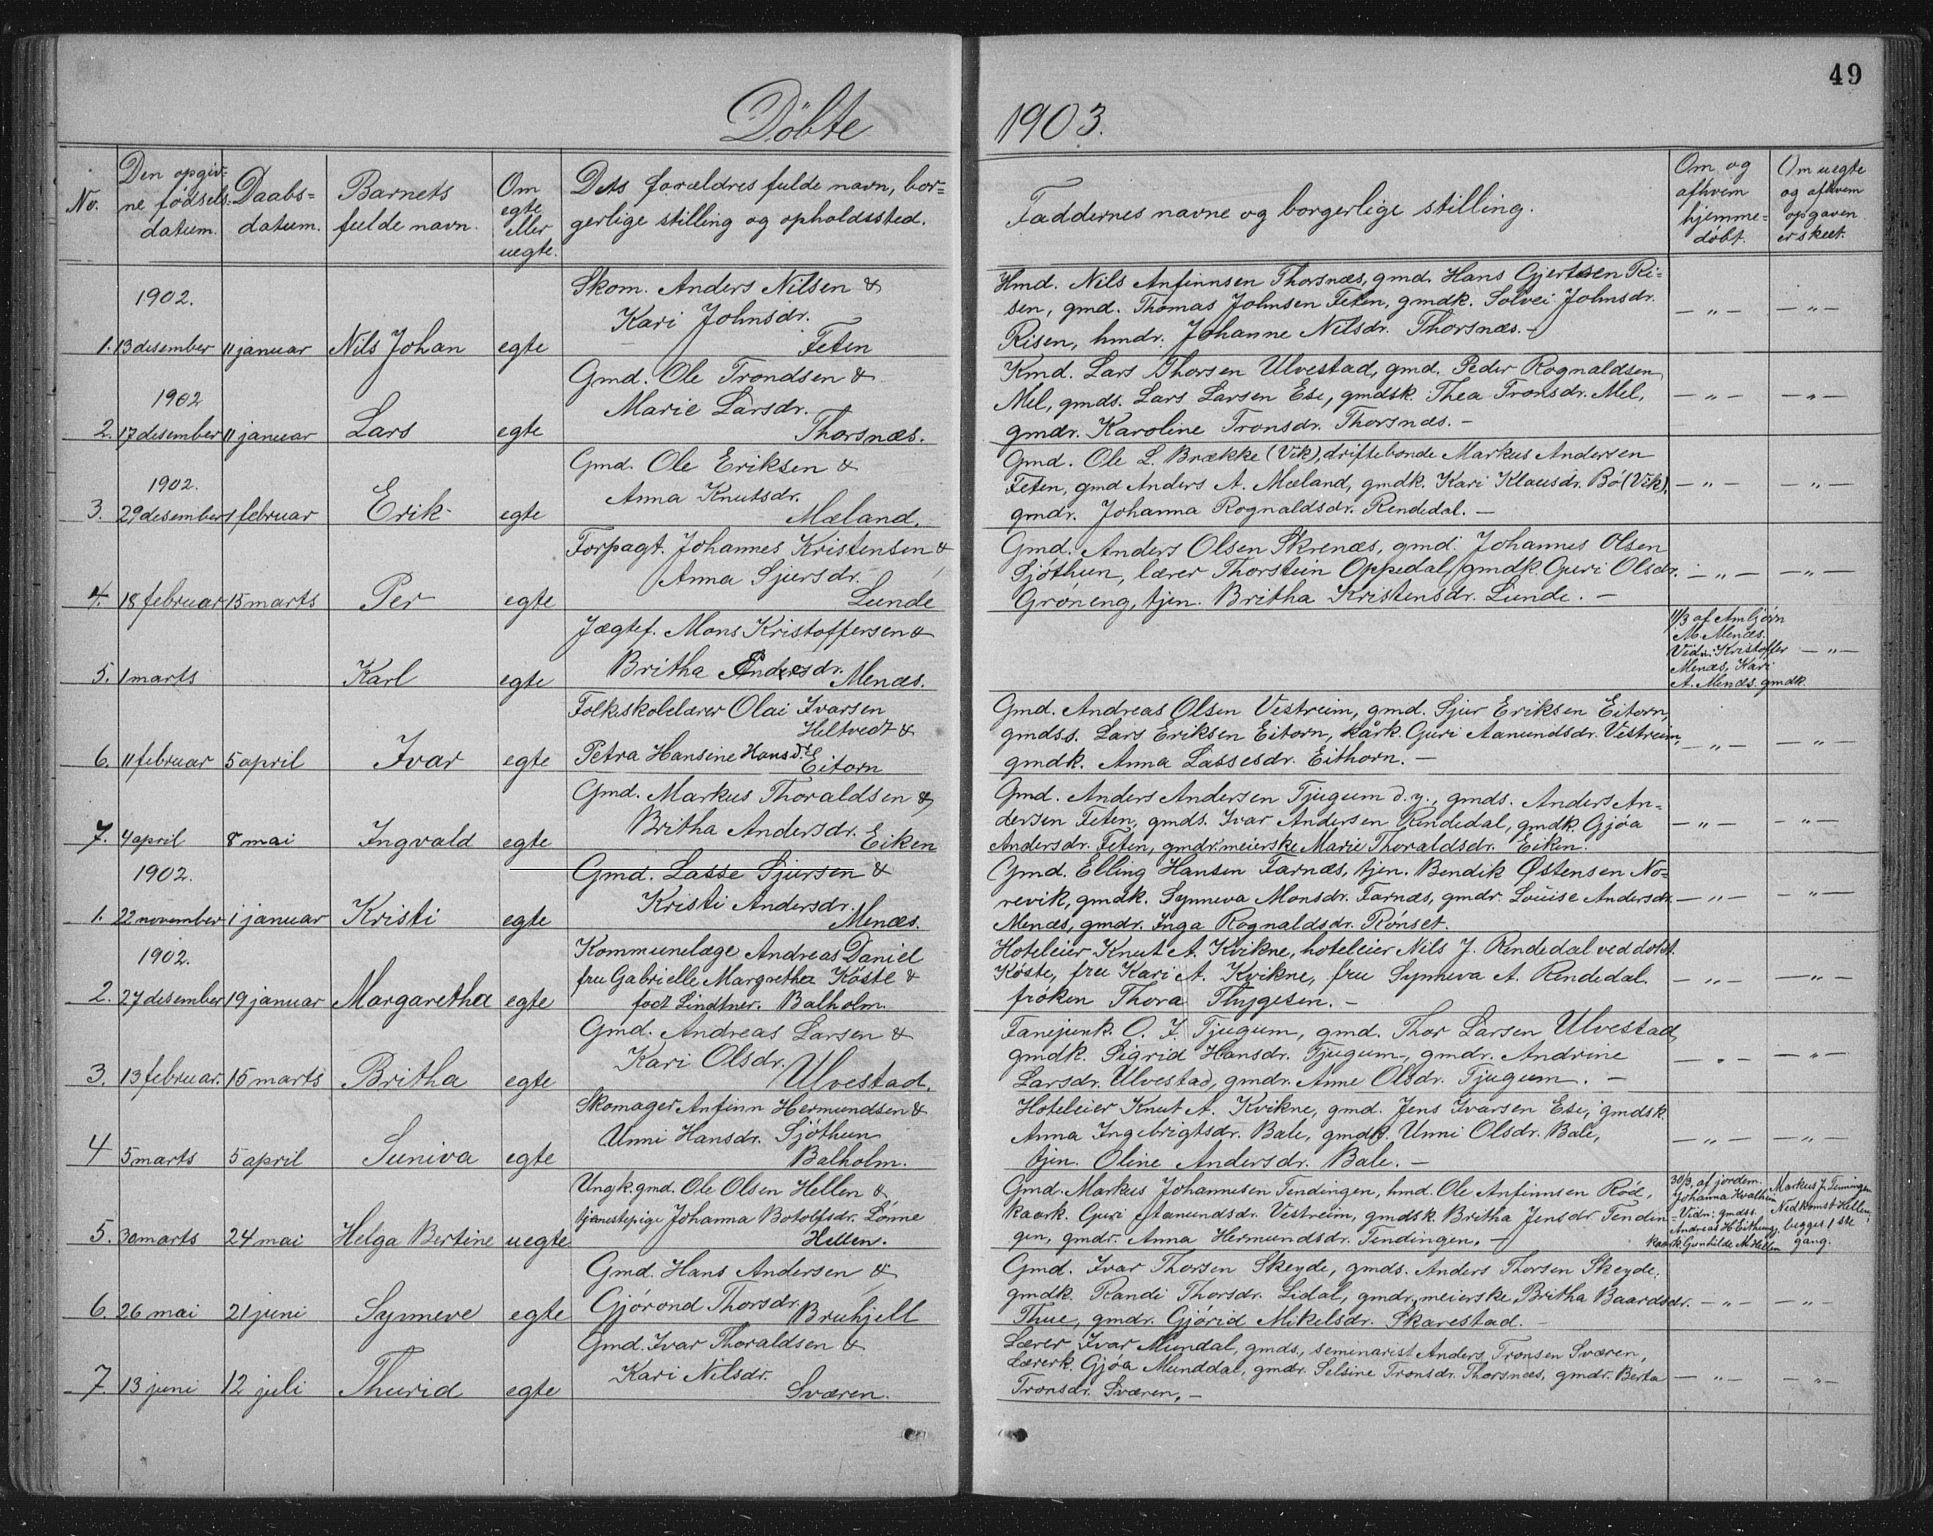 49
Döbte 1903.
No.
Den opgiv-
ne födsels-
datum.
Daabs-
datum.
Barnets
fulde navn.
Om
egte
eller
uegte.
Dets forældres fulde navn, bor-
gerlige stilling og opholdssted.
Faddernes navne og borgerlige stilling.
Om og
afhvem
hjemme-
döbt.
Om uegte
og afhvem
opgaven
er skeet.
1902.
Skom. Anders Nilsen &
Kari Johnsdr.
1. 13 desember 11 januar Nils Johan egte Feten
Hmd. Nils Anfinnsen Thorsnæs, gmd. Hans Gjertsen Ri-
sen, gmd. Thomas Johnsen Feten, gmdk. Solvei Johnsdr.
Risen, hmdr. Johanne Nilsdr. Thorsnæs. –
— „ — — „ —
1902
Gmd. Ole Trondsen &
Marie Larsdr.
2. 17 desember 11 januar Lars egte Thorsnæs.
Kmd. Lars Thorsen Ulvestad, gmd. Peder Rognaldsen
Mel, gmds. Lars Larsen Ese, gmdsk. Thea Tronsdr. Mel,
gmdr. Karoline Tronsdr. Thorsnæs. –
— „ — — „ —
1902.
Gmd. Ole Eriksen &
Anna Knutsdr.
3. 29 desember 1 februar Erik egte Mæland.
Gmd. Ole L. Brække (Vik), driftebonde Markus Andersen
Feten, gmd Anders A. Mæland, gmdk. Kari Klausdr. Bö (Vik),
gmdr. Johanna Rognaldsdr. Rendedal. –
— „ — — „ —
Forpagt. Johannes Kristensen &
Anna Sjursdr.
4. 18 februar 15 marts Per egte Lunde
Gmd. Anders Olsen Skrenæs, gmd. Johannes Olsen
Sjöthun, lærer Thorstein Oppedal, gmdk. Guri Olsdr.
Gröneng, tjen. Britha Kristensdr. Lunde. –
— „ — — „ —
Jægtef. Mons Kristoffersen &
Britha Andersdr. Menæs.
5. 1 marts Karl egte
11/3 af
M. Menæs.
Vidn: Kristoffer
Menæs, Kari
A. Menæs. gmdk.
— „ —
Folkskolelærer Olai Ivarsen
Heltvedt &
Petra Hansine Hansdr.
6. 11 februar 5 april Ivar egte Eitorn
Gmd. Andreas Olsen Vestreim, gmd. Sjur Eriksen Eitorn,
gmdss. Lars Eriksen Eitorn, kårk. Guri Aanundsdr. Vestreim,
gmdk. Anna Lassesdr. Eithorn. –
— „ — — „ —
Gmd. Markus Thoraldsen &
Britha Andersdr.
7. 4 april 8 mai Ingvald egte Eiken
Gmd. Anders Andersen Tjugum d. y., gmds. Anders An-
dersen Feten, gmds. Ivar Andersen Rendedal, gmdk. Gjöa
Andersdr. Feten, gmdr. meierske Marie Thoraldsdr. Eiken.
— „ — — „ —
1902.
Gmd. Lasse Sjursen &
Kristi Andersdr.
1. 22 november 1 januar Kristi egte Menæs.
Gmd. Elling Hansen Farnæs, tjen. Bendik Østensen No-
revik, gmdk. Synneva Monsdr. Farnæs, gmdr. Louise Andersdr.
Menæs, gmdr. Inga Rognaldsdr. Rönset.
— „ — — „ —
1902.
Kommunelæge Andreas Daniel
fru Gabrielle Margretha Köste &
2. 27 desember 19 januar Margaretha egte födt Lindtner. Balholm.
Hoteleier Knut A. Kvikne, hoteleier Nils J. Rendedal ved
Köste, fru Kari A. Kvikne, fru Synneva A. Rendedal.
fröken Thora Thygesen. –
— „ — — „ —
Gmd. Andreas Larsen &
Kari Olsdr.
3. 13 februar. 15 marts Britha egte Ulvestad.
Fanejunk. O. J. Tjugum, gmd. Thor Larsen Ulvestad,
gmdk. Sigrid Hansdr. Tjugum, gmdr. Andrine
Larsdr. Ulvestad, gmdr. Anne Olsdr. Tjugum. –
— „ — — „ —
Skomager Anfinn Hermundsen &
Unni Hansdr. Sjöthun
4 5 marts 5 april Suniva egte Balholm.
Hoteleier Knut A. Kvikne, gmd. Jens Ivarsen Ese, gmdsk.
Anna Ingebrigtsdr. Bale, gmdk. Unni Olsdr. Bale,
tjen. Oline Andersdr. Bale. –
— „ — — „ —
Ungk. gmd. Ole Olsen Hellen &
tjenestepige Johanna Botolfsdr. Lönne
5. 30 marts 24 mai Helga Bertine uegte Hellen.
Gmd. Markus Johannesen Tendingen, hmd. Ole Anfinnsen Röd,
kaark. Guri Aanundsdr. Vestreim, gmdsk. Britha Jensdr. Tendin-
gen, gmdr. Anna Hermundsdr. Tendingen. –
30/3, af jordem.
Johanna Kvalheim
Vidn: gmdss.
Andreas H Eithun,
kaark. Gunhilde M Hellen
Markus J. Tenningen
Nedkomst Hellen,
begges 1ste
gang.
Gmd. Hans Andersen &
Gjörond Thorsdr.
6. 26 mai 21 juni Synneve egte Bruhjell
Gmd. Ivar Thorsen Skeyde, gmds. Anders Thorsen Skeyde,
gmdk. Randi Thorsdr. Lidal, gmdr. meierske Britha Baardsdr.
Thue, gmdr. Gjörid Mikelsdr. Skarestad. –
— „ — — „ —
Gmd. Ivar Thoraldsen &
Kari Nilsdr.
7 13 juni 12 juli Thurid egte Sværen.
Lærer Ivar Mundal, gmds, seminarist Anders Tronsen Sværen,
Lærerk. Gjöa Munddal, gmdr. Selsine Tronsdr. Thorsnæs, gmdr. Berta
Tronsdr. Sværen. –
— „ — — „ —